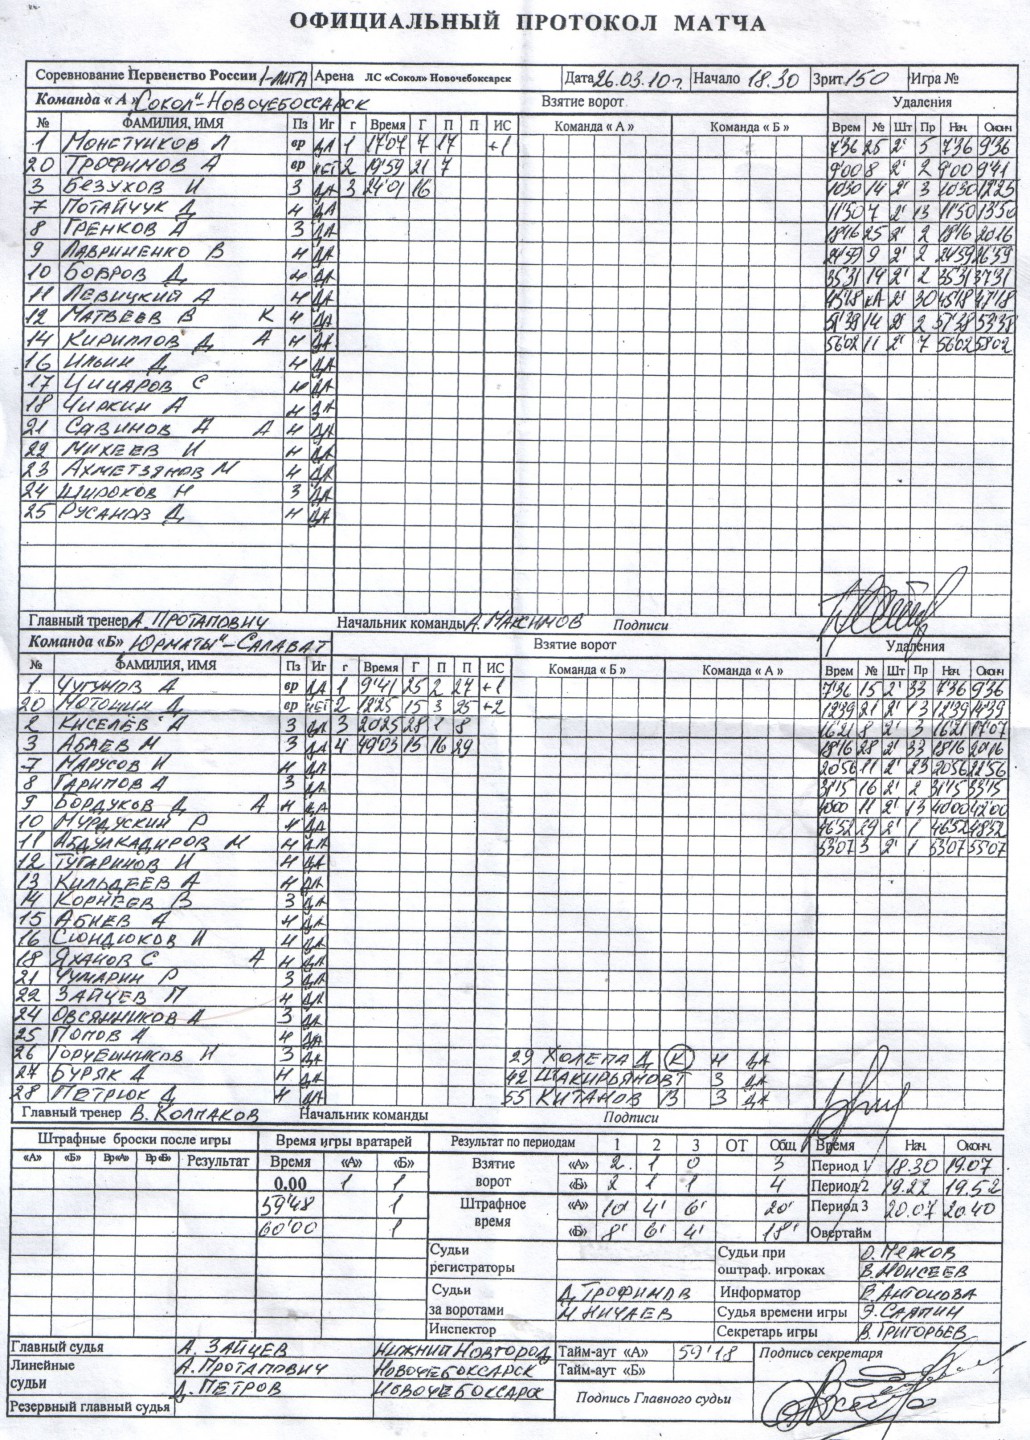 ОФИЦИАЛЬНЫЙ ПРОТОКОЛ МАТЧА
Соревнование Первенство России 1-лига Арена ЛС «Сокол» Новочебоксарск Дата 26.03.10г. Начало 18.30 Зрит 150 Игра №
Команда « А » Сокол"-Новочебоксарск Взятие ворот Удаления
№ ФАМИЛИЯ, ИМЯ Пз Иг г Время Г П П ИС Команда « А » Команда « Б » Врем № Шт Пр Нач. Оконч
1 Монетчиков Л вр да 1 17'07 7 17 +1 7'36 25 2' 5 7'36 9'36
20 Трофимов А вр нет 2 19'59 21 7 9'00 8 2' 2 9'00 9'41
3 Безухов И З да 3 24'01 16 10'30 14 2' 3 10'30 12'25
7 Потайчук Д н да 11'50 7 2' 13 11'50 13'50
8 Гренков А З да 18'16 25 2' 2 18'16 20'16
9 Лавриненко В н да 24'59 9 2' 2 24'59 26'59
10 Бобров Д н да 35'31 14 2' 2 35'31 37'31
11 Левицкий А н да 45'18 кА 2' 30 45'18 47'18
12 Матвеев В К н да 51'38 14 2' 2 51'38 53'38
14 Кириллов Д А н да 56'02 11 2' 7 56'02 58'02
16 Ильин Д н да
17 Цицаров С н да
18 Чиркин А н да
21 Савинов А А н да
22 Михеев И н да
23 Ахметзянов М н да
24 Широков Н З да
25 Русанов Д н да
Главный тренер А. Протапович Начальник команды А. Максимов Подписи
Команда «Б» Юрматы"-Салават Взятие ворот Удаления
№ ФАМИЛИЯ, ИМЯ Пз Иг г Время Г П П ИС Команда « Б » Команда « А » Врем № Шт Пр Нач Оконч
1 Чугунов А вр да 1 9'41 25 2 27 +1 7'36 15 2' 33 7'36 9'36
20 Мотошин Д вр нет 2 12'25 15 3 25 +2 12'39 21 2' 13 12'39 14'39
2 Киселёв А З да 3 20'25 28 1 8 16'21 8 2' 3 16'21 17'07
3 Абаев М З да 4 49'03 15 16 29 18'16 28 2' 33 18'16 20'16
7 Марусов И н да 20'56 11 2' 23 20'56 22'56
8 Гарипов А З да 31'15 16 2' 2 31'15 33'15
9 Бордуков Д А н да 40'00 11 2' 13 40'00 42'00
10 Мурдуский Р н да 46'52 29 2' 1 46'52 48'52
11 Абдулкадиров М н да 53'07 3 2' 1 53'07 55'07
12 Тугаринов И н да
13 Кильдеев А н да
14 Корнеев В З да
15 Абиев А н да
16 Сюндюков И н да
18 Яхаиов С А н да
21 Чумарин Р З да
22 Зайцев П н да
24 Овсянников А З да
25 Попов А н да
26 Горчешников И З да 29 Холепа Д К н да
27 Буряк А н да 42 Шакирьянов Т З да
28 Петрюк Д н да 55 Китанов В З да
Главный тренер В. Колпаков Начальник команды Подписи
Штрафные броски после игры Время игры вратарей Результат по периодам 1 2 3 ОТ Общ Время Нач. Оконч.
«А» «Б» Вр«А» Вр«Б» Результат Время «А» «Б» Взятие ворот «А» 2 1 0 3 Период 1 18.30 19.07
0.00 1 1 «Б» 2 1 1 4 Период 2 19.22 19.52
59'48 1 Штрафное время «А» 10' 4' 6' 20' Период 3 20.07 20.40
60'00 1 «Б» 8' 6' 4' 18' Овертайм
Судьи регистраторы Судьи при оштраф. игроках О. Перков
В. Моисеев
Судьи за воротами Д. Трофимов Информатор Е. Антонова
Н. Ничаев Судья времени игры Э. Салтин
Инспектор Секретарь игры В. Григорьев
Главный судья А. Зайцев Нижний Новгород Тайм-аут «А» 59'18 Подпись секретаря
Линейные судьи А. Протапович Новочебоксарск Тайм-аут «Б»
Д. Петров Новочебоксарск Подпись Главного судьи
Резервный главный судья